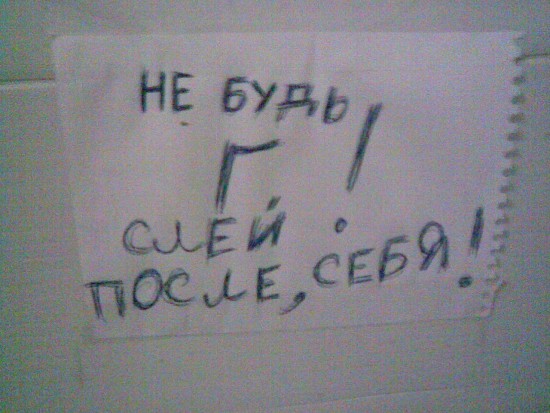 НЕ БУДЬ
Г!
СЛЕЙ
ПОСЛЕ, СЕБЯ!